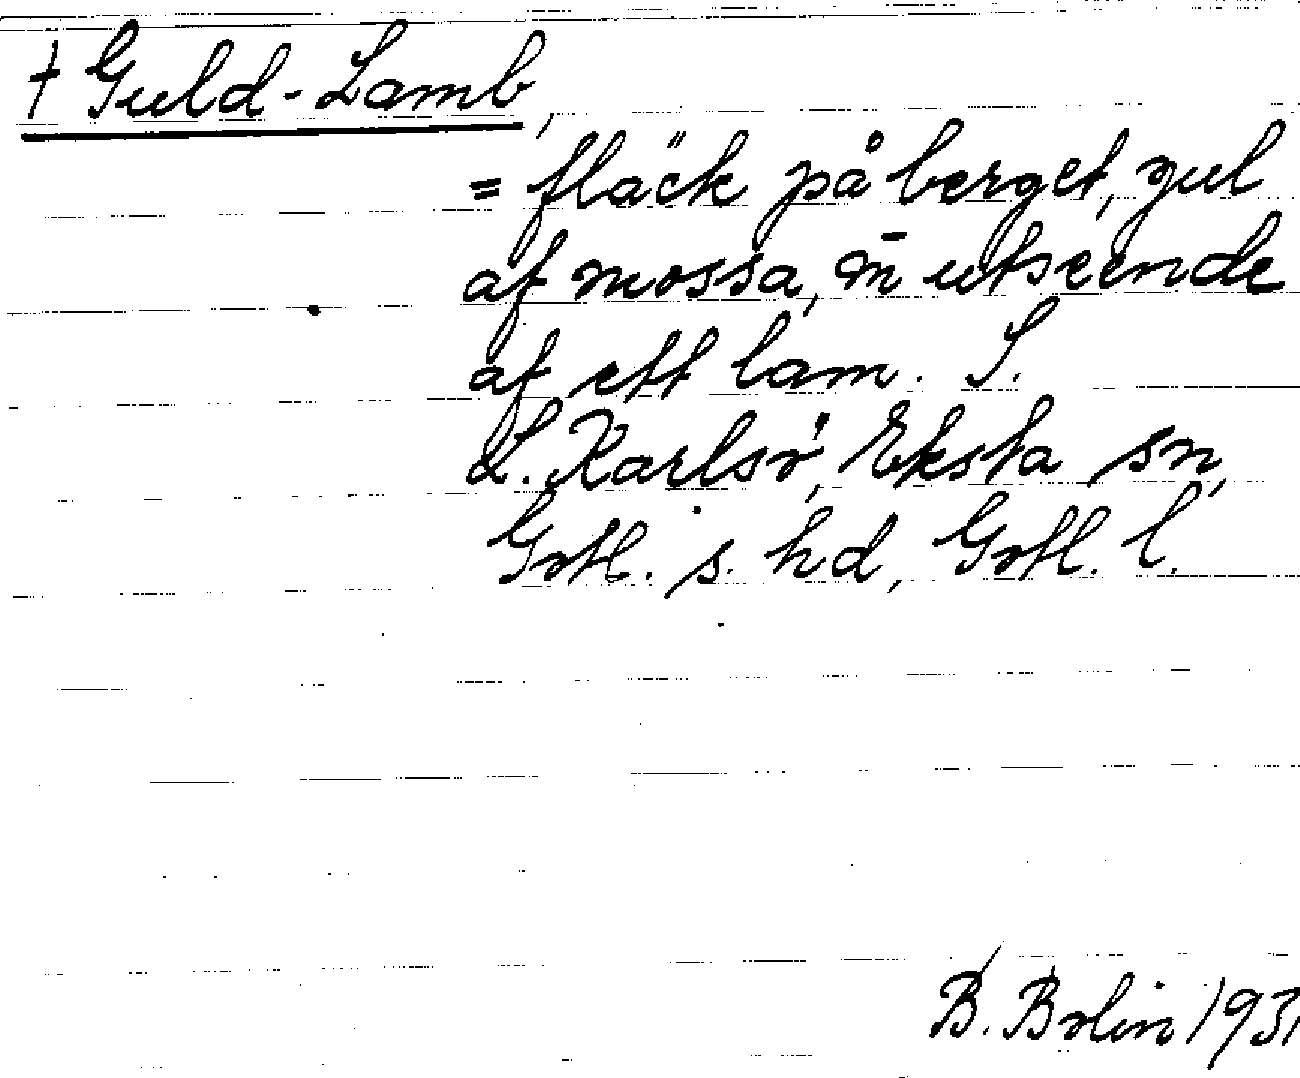 † Guld-Lamb,
= fläck på berget, gul
af mossa, m̄ utseende
af ett lam. S.
L. Karlsö, Eksta sn,
Gotl. s. hd, Gotl. l.
B. Bolin 1931